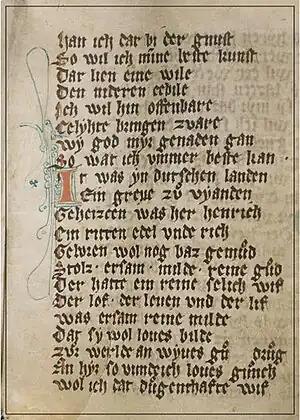 Han ich dar bi der gunst
So wil ich mine beste kunst
Dar lien eine wile
Den mderen eedile
Ich wil hin offenbare
Ceyhte bringen zware
Wy god myr genaden gan
So war ich ummer beste kan
Ir was yn dutschen landen
Ein greve zů vyanden
Geheizeen was her henrich
Ein ritter edel unde rich
Geboren wol nog baz gemůd
Stolz · ersam · milde · reine gůd
Der hatte ein reine selich wif
Der lof · der louen vnd der lif
was ersam reine milde
Dar sy wol loues bilde
zůr werlde an wyues gů drůg
An hyr so vundich loues gnůch
wol ich dar dugenthafte wif